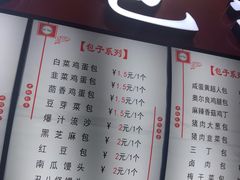 【包子系列】
白菜鸡蛋包 ¥1.5元/1个
韭菜鸡蛋包 ¥1.5元/1个
茴香鸡蛋包 ¥1.5元/1个
豆芽菜包 ¥1.5元/1个
爆汁流沙 ¥2元/1个
黑芝麻包 ¥2元/1个
红豆包 ¥2元/1个
南瓜馒头 ¥2元/1个
【包子
咸蛋黄超人包
奥尔良鸡腿包
麻辣香菇鸡丁
猪肉大葱包
猪肉白菜
三丁包
卤肉包
梅干菜